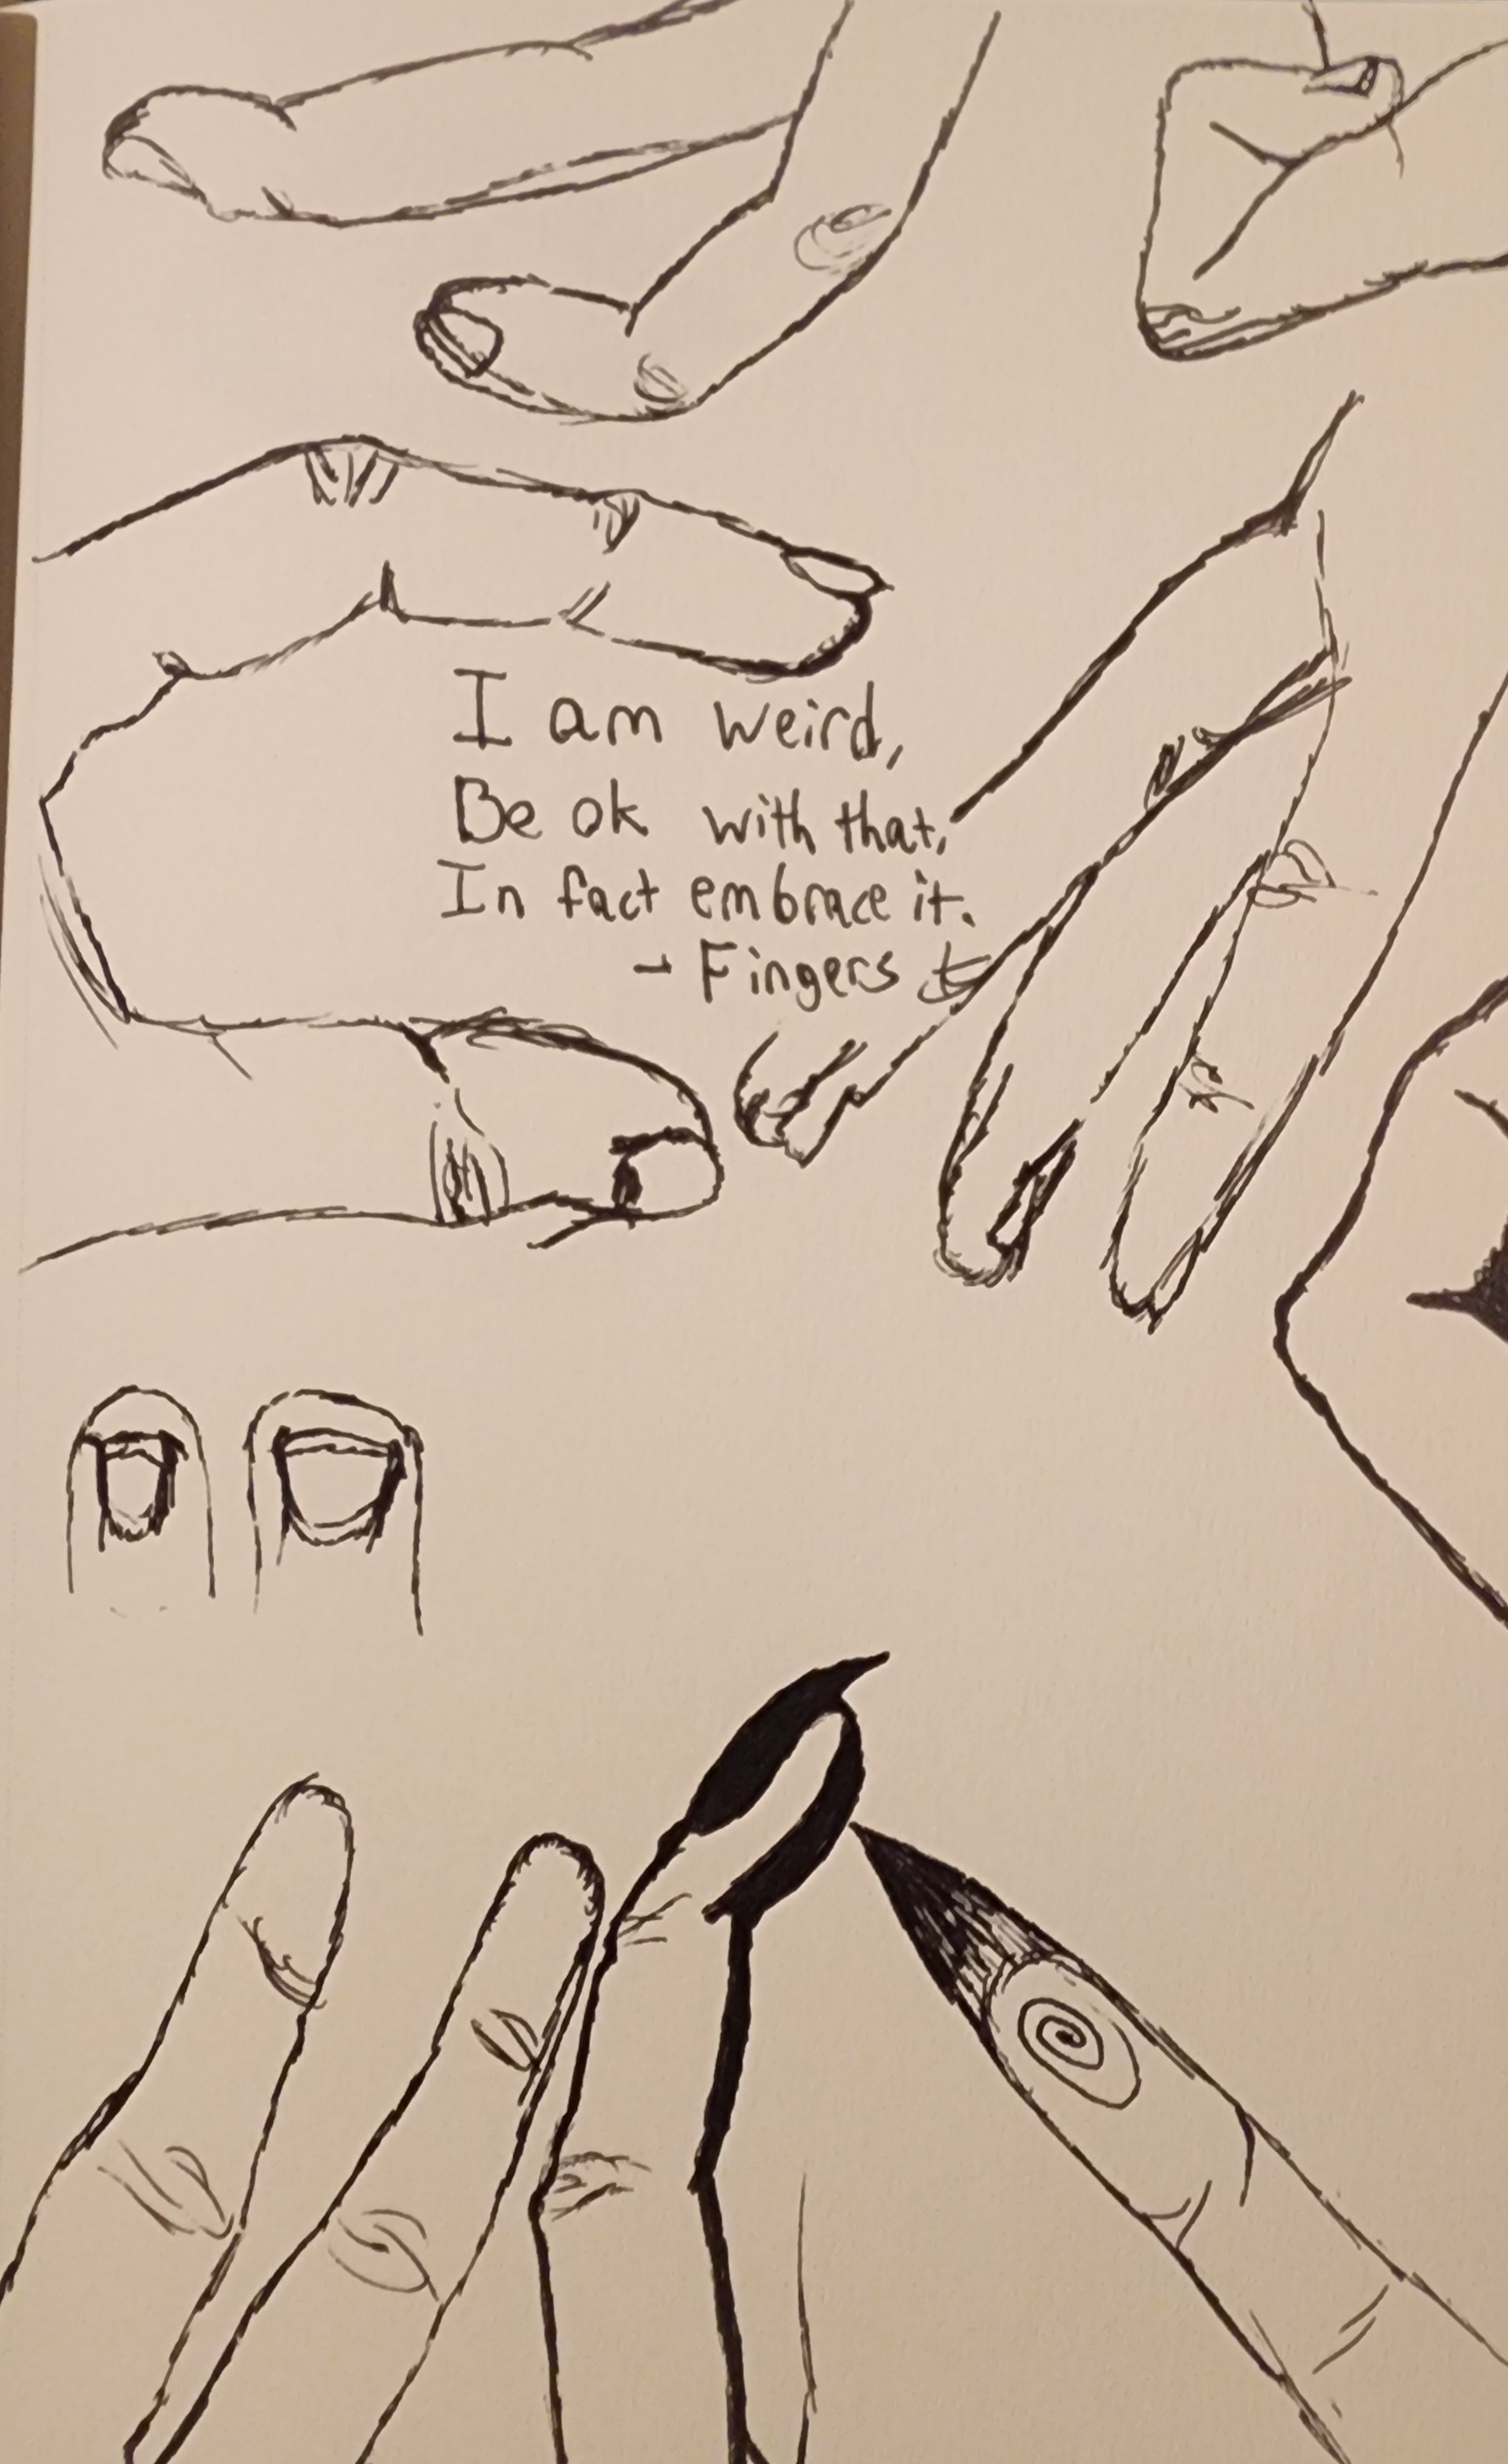 I am weird,
Be ok with that.
In fact embrace it.
- Fingers